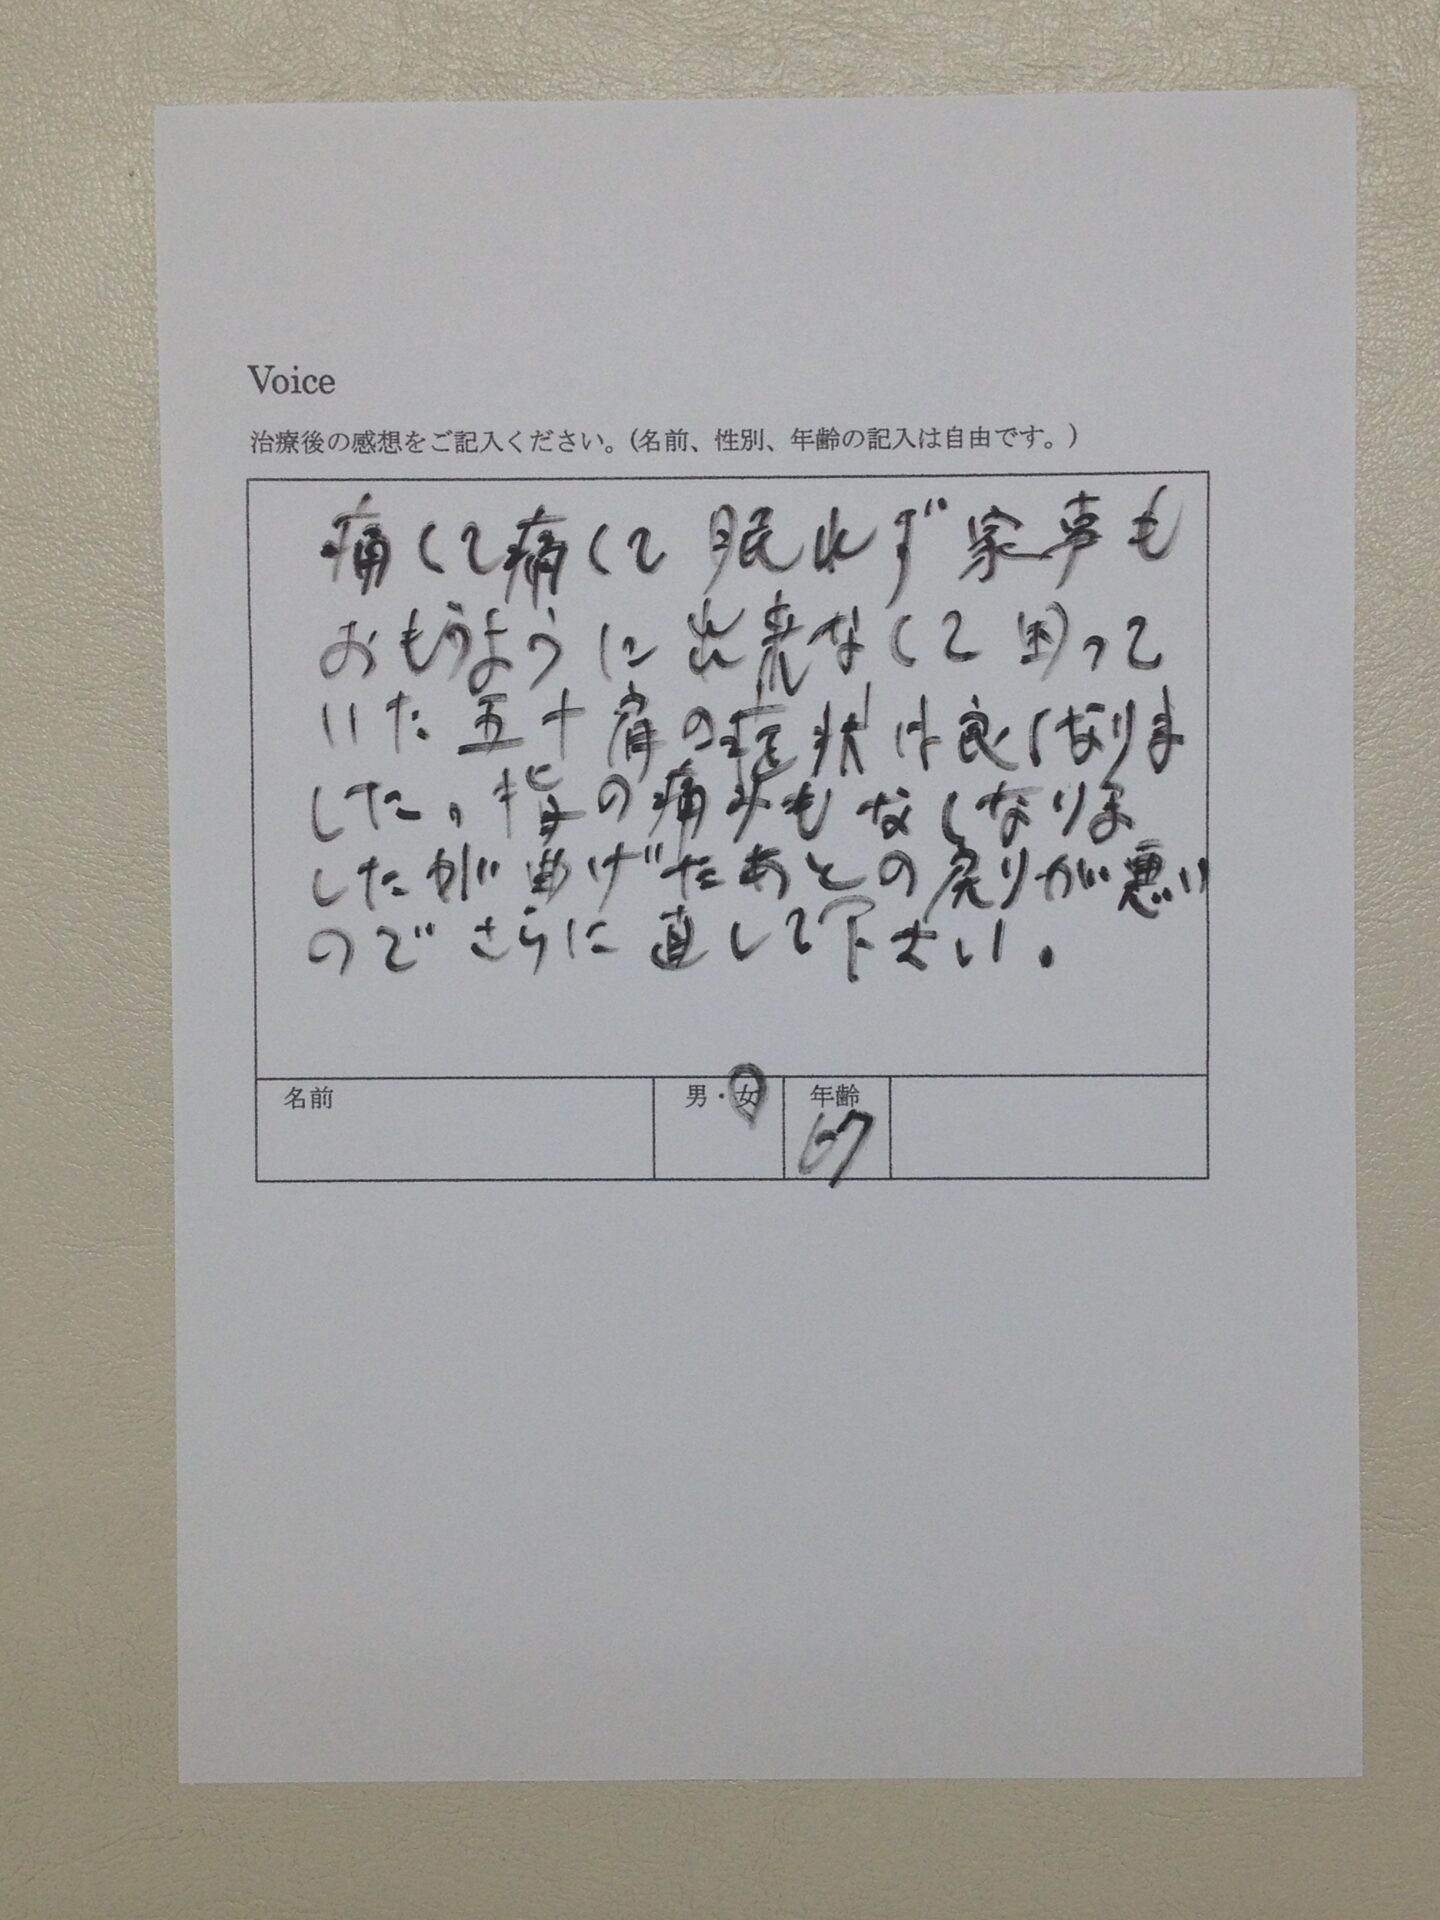 Voice
治療後の感想をご記入ください。(名前、性別、年齢の記入は自由です。)
痛くて痛くて眠れず家事も
おもうように出来なくて困って
いた五十肩の症状は良くなりま
した。指の痛みもなくなりま
したが曲げたあとの戻りが悪い
のでさらに直して下さい。
名前 男・女 年齢
67